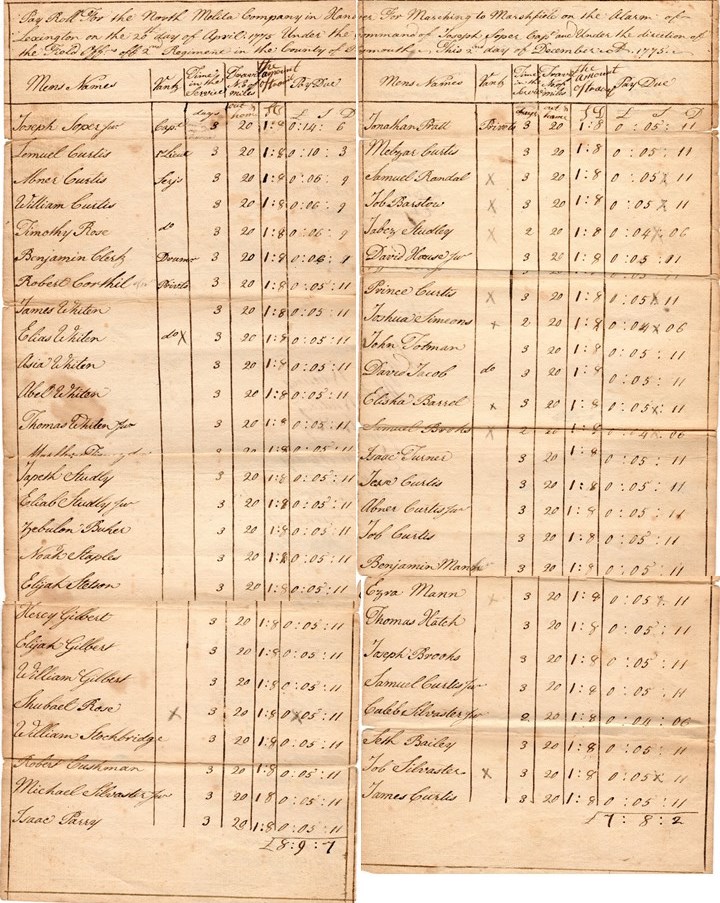 Pay Roll For the North Molita Company in Hanover For Marching to Marshfield on the Alarm of
Lexington on the 20th day of April 1775 Under the Command of Joseph Soper Capt and Under the direction of
the Field Offrs of 2nd Regiment in the County of This 2nd day of December AD 1775
Mens Names Rank Time in the Service Travel No of miles The amount of today Pay Due
days out & home £ S D
Joseph Soper jur Capt 3 20 1:8 0:14:6
Lemuel Curtis 1 Lieut 3 20 1:8 0:10:3
Abner Curtis Serjt 3 20 1:8 0:06:9
William Curtis 3 20 1:8 0:06:9
Timothy Rose do 3 20 1:8 0:06:9
Benjamin Clerk Drumr 3 20 1:8 0:06:9
Robert Corthil jur Private 3 20 1:8 0:05:11
James Whiten 3 20 1:8 0:05:11
Elias Whiten do X 3 20 1:8 0:05:11
Asia Whiten 3 20 1:8 0:05:11
Abel Whiton 3 20 1:8 0:05:11
Thomas Whiten jur 3 20 1:8 0:05:11
20 1:8 0:05:11
Japeth Studly 3 20 1:8 0:05:11
Eliab Studly jur 3 20 1:8 0:05:11
Zebulon Buker 3 20 1:8 0:05:11
Noah Staples 3 20 1:8 0:05:11
Elijah Stetson 3 20 1:8 0:05:11
Hercy Gilbert 3 20 1:8 0:05:11
Elijah Gilbert 3 20 1:8 0:05:11
William Gilbert 3 20 1:8 0:05:11
Shubael Rose X 3 20 1:8 0:05:11
William Stockbridge 3 20 1:8 0:05:11
Robert Cushman 3 20 1:8 0:05:11
Michael Silvaster jur 3 20 1:8 0:05:11
Isaac Parry 3 20 1:8 0:05:11
£8:9:7
Mens Names Rank Time in the Service Travel No of miles The amount of today Pay Due
days out & home £ S D
Jonathan Pratt Private 3 20 1:8 0:05:11
Melzar Curtis 3 20 1:8 0:05:11
Samuel Randal X 3 20 1:8 0:05X:11
Job Barstow X 3 20 1:8 0:05X:11
Jabez Studley X 2 20 1:8 0:04X:06
David House jur 3 20 1:8 0:05:11
Prince Curtis X 3 20 1:8 0:05X:11
Joshua Simeons X 2 20 1:8 0:04X:06
John Totman 3 20 1:8 0:05:11
David Jacob do 3 20 1:8 0:05:11
Elisha Barrel X 3 20 1:8 0:05X:11
Samuel Brooks X 2 20 1:8 0:04X:06
Isaac Turner 3 20 1:8 0:05:11
Jese Curtis 3 20 1:8 0:05:11
Abner Curtis jur 3 20 1:8 0:05:11
Job Curtis 3 20 1:8 0:05:11
Benjamin Mann 3 20 1:8 0:05:11
Ezra Mann X 3 20 1:8 0:05X:11
Thomas Hatch 3 20 1:8 0:05:11
Joseph Brooks 3 20 1:8 0:05:11
Samuel Curtis jur 3 20 1:8 0:05:11
Caleb Silvaster jur 2 20 1:8 0:04:06
Seth Bailey 3 20 1:8 0:05:11
Job Silvaster X 3 20 1:8 0:05X:11
James Curtis 3 20 1:8 0:05:11
£7:8:2